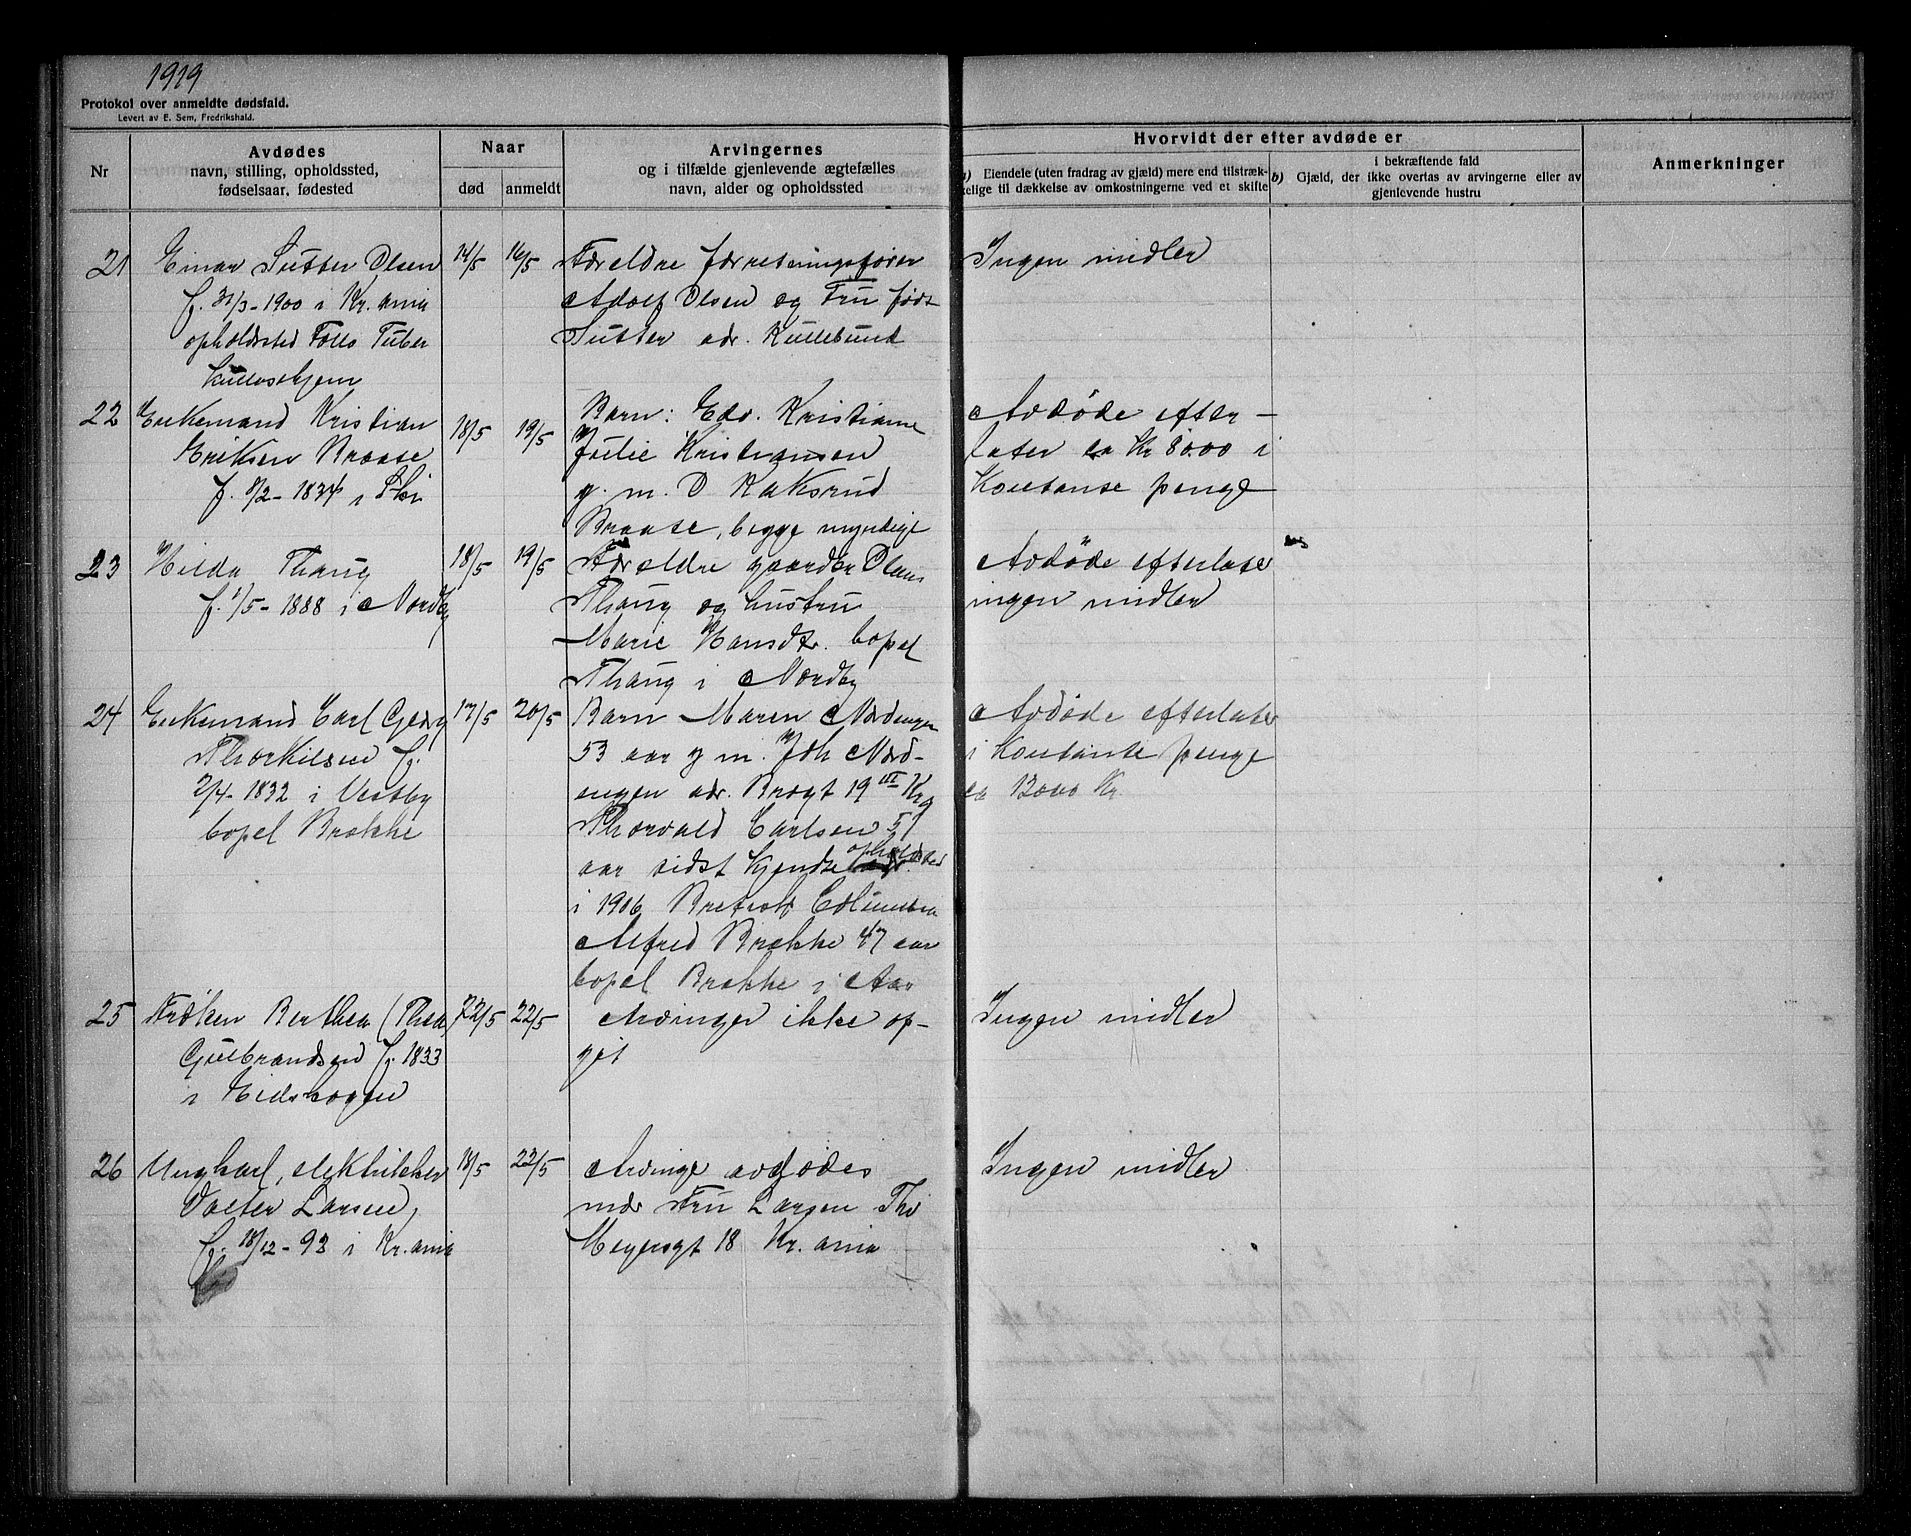 1919
Protokol over anmeldte dødsfald.
Levert av E. Sem, Fredrikshald.
Nr
Avdødes
navn, stilling, opholdssted,
fødselsaar, fødested
Naar
død
anmeldt
Arvingernes
og i tilfælde gjenlevende ægtefælles
navn, alder og opholdssted
Hvorvidt der efter avdøde er
a) Eiendele (uten fradrag av gjæld) mere end tilstræk-
kelige til dækkelse av omkostningerne ved et skifte
i bekræftende fald
b) Gjæld, der ikke overtas av arvingerne eller av
gjenlevende hustru
Anmerkninger
21
Einar Sutter Olsen
f. 31/3-1900 i Kr.ania
opholdssted Follo Tuber
kulosehjem
14/5
16/5
Forældre forretningsfører
Adolf Olsen og Fru født
Sutter adr. Kullebund
Ingen midler
22
Enkemand Kristian
Eriksen Braate
f. 8/2-1834 i Ski
18/5
19/5
Barn: Edv. Kristianse
Julie Kristiansen
g. m. O Kaksrud
Braate, begge myndige
Avdøde efter-
later ca Kr 8000 i
Kontante penge
23
Hilda Thaug
f. 1/5-1888 i Nordby
18/5
19/5
Forældre gaardbr Olaus
Thaug og hustru
Marie Hansdtr. bopel
Thaug i Nordby
Avdøde efterlater
ingen midler
24
Enkemand Carl Georg
Thorkilsen f.
2/4-1832 i Vestby
bopel Brække
17/5
20/5
Barn Maren Nordengen
53 aar g m. Joh Nord-
engen adr. Brogt 19 III Kra
Thorvald Carlsen 51
aar sidst kjendte opholdssted
i 1906 Britisk Columbia
Alfred Brække 47 aar
bopel Brække i Aas
Avdøde efterlater
i Kontante penge
ca 12000 Kr
25
Frøken Berthea (Thea)
Gulbrandsen f. 1833
i Eidskogen
22/5
22/5
Arvinger ikke op-
git
Ingen midler
26
Ungkarl, elektriker
Valter Larsen,
f. 18/12-93 i Kr.ania
18/5
22/5
Arvinge avdødes
mor Fru Larsen Th.
Meyersgt 18 Kr.ania
Ingen midler